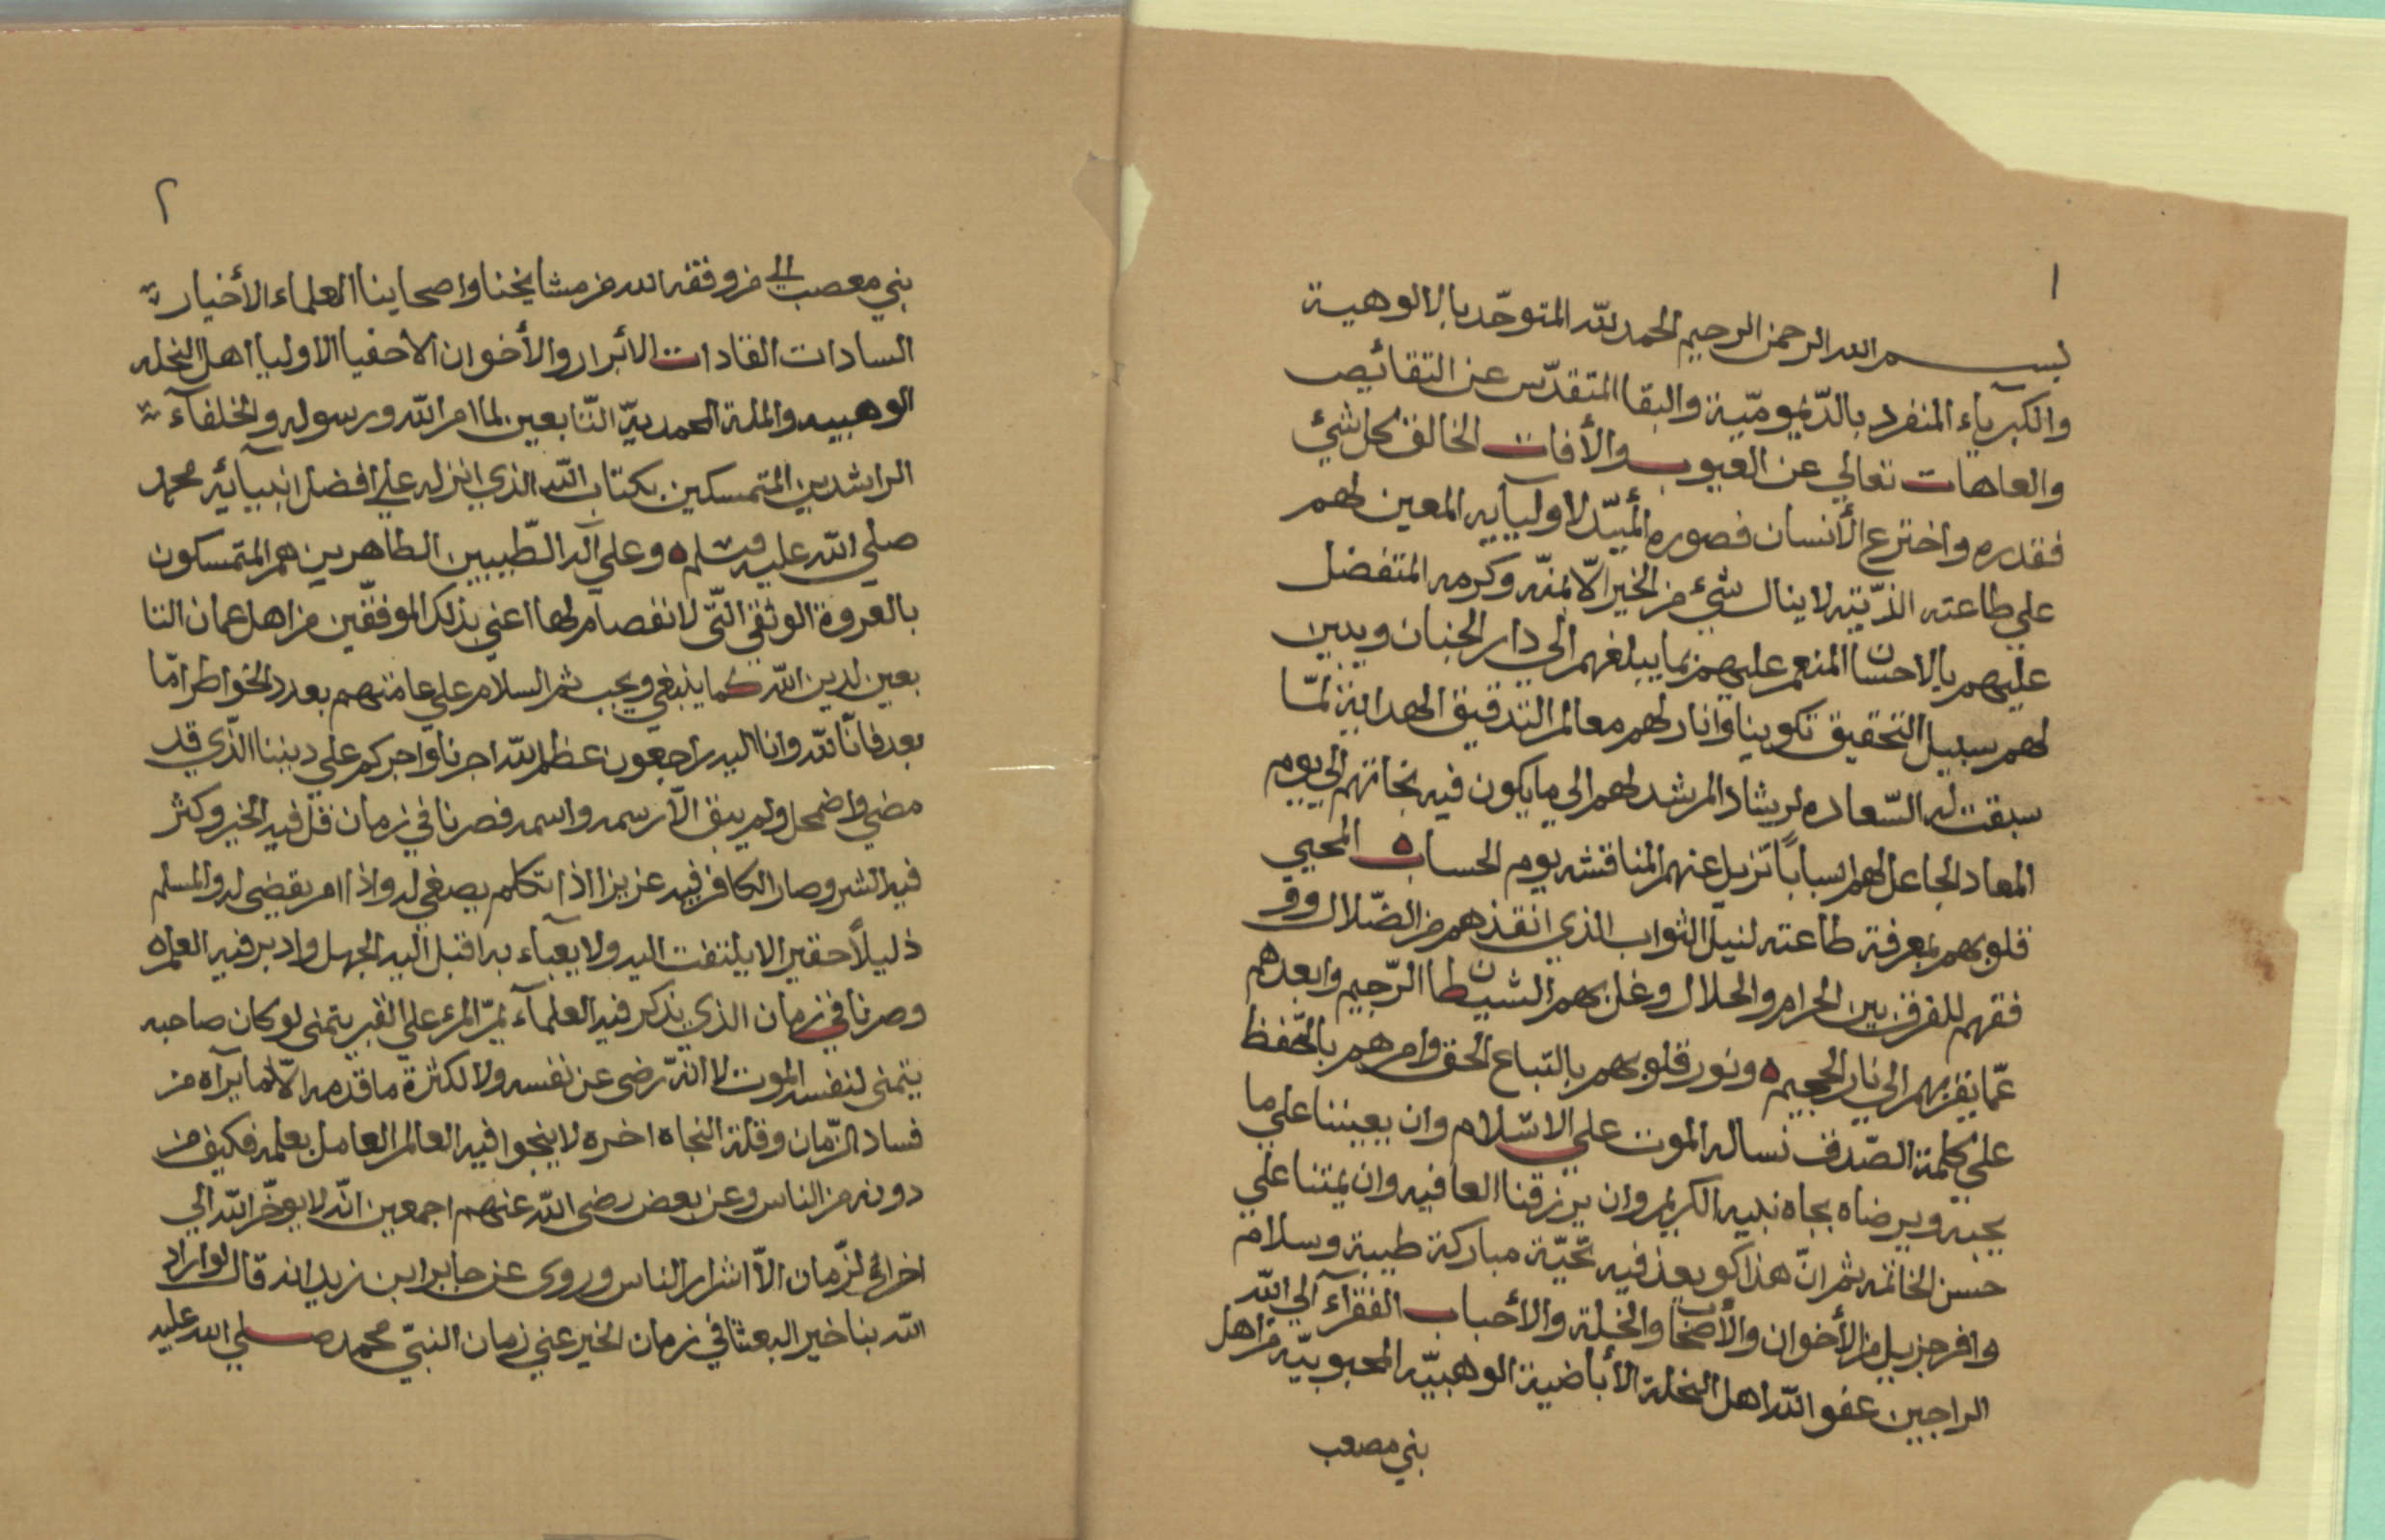 ١
بسم الله الرحمن الرحيم الحمد لله المتوحّد بالالوهية
والكبرياء المنفرد بالدّيموميّة والبقا المتقدّس عن النقائص
والعاهات تعالي عن العيوب والأفات الخالق كل شئ
فقدره واخترع الأنسان فصوره المأيّد لاوليآيه المعين لهم
علي طاعته الذي لا ينال شيء من الخير الّا بمنّه وكرمه المتفضل
عليهم بالاحسان المنعم عليهم بما يبلغهم الي دار الجنان ويبين
لهم سبيل التحقيق تكوينا وانار لهم معالم التدقيق الهداية لمّا
سبقت له السّعاده لريشاد المرشد لهم الي ما يكون فيه نجاتهم الي يوم
المعاد الجاعل لهم اسباباً تزيل عنهم المناقشه يوم الحساب ه المحيي
قلوبهم بمعرفة طاعته لنيل الثواب الذي انقذهم من الضّلال ووف
فقهم للفرق بين الحرام والحلال وغل بهم الشيطان الرّجيم وابعدهم
عمّا يقربهم الي نار الجحيم ه ونور قلوبهم بالتباع الحق وامرهم بالحفظ
علي كلمة الصّدق نساله الموت علي الاسلام وان يعيننا علي ما
يحبه ويرضاه بجاه نبيه الكريم وان يرزقنا العافيه وان يمتنا علي
حسن الخاتمه ثم انّ هذا كو بعذ فيه تحيّة مباركة طيبة وسلام
وافر جزيل من الأخوان والأصحاب والخلة والأحباب الفقرآء الي الله
الراجين عفو الله اهل النحلة الأباضية الوهبيّه المحبوبيّه من اهل
بني مصعب
٢
بني معصب الي من وفقه الله من مشايخنا واصحابنا العلماء الأخيار
السادات القادات الابرار والأخوان الاحفيا الاوليا اهل النحله
الوهبيه والملة المحمديّة التّابعين لما امر الله ورسوله والخلفآء
الراشدين المتمسكين بكتاب الله الذي انزله علي افضل انبيائه محمد
صلي الله عليه وسلم ه وعلي آله الطّيبين الطاهرين هم المتمسكون
بالعروة الوثقي التّي لا نفصام لها اعني بذلك الموفقّين من اهل عمان التا
بعين لدين الله كما ينبغي ويجب ثم السلام علي عامتهم بعدد الخواطر امّا
بعد فانّا لله وانا اليه راجعون عظم الله اجرنا واجركم علي ديننا الذّي قد
مضي واضمحل ولم يبق الّا رسمه واسمه فصرنا في زمان قلّ فيه الخير وكثر
فيه الشر وصار الكافر فيه عزيزا اذا تكلم يصغي له واذا امر يقضي له والمسلم
ذليلاً حقيرا لا يلتفت اليه ولا يعبآء به اقبل اليه الجهل وادبر فيه العلم ه
وصرنا في زمان الذي يذكر فيه العلمآء يمرّ المرء علي القبر يتمني لو كان صاحبه
يتمني لنفسه الموت لا انّه رضي عن نفسه ولا لكثرة ما قدمه الّا لما يرآه من
فساد الزّمان وقلة النجاه اخره لا ينجوا فيه العالم العامل بعلمه فكيف من
دونه من الناس وعن بعض رضي الله عنهم اجمعين انّه لا يوخّر الله الي
اخر الزّمان الاّ اشرار الناس وروي عن جابر ابن زيد انه قال لو اراد
الله بنا خير البعثنا في زمان الخير عني زمان النبيّ محمد صلي الله عليه